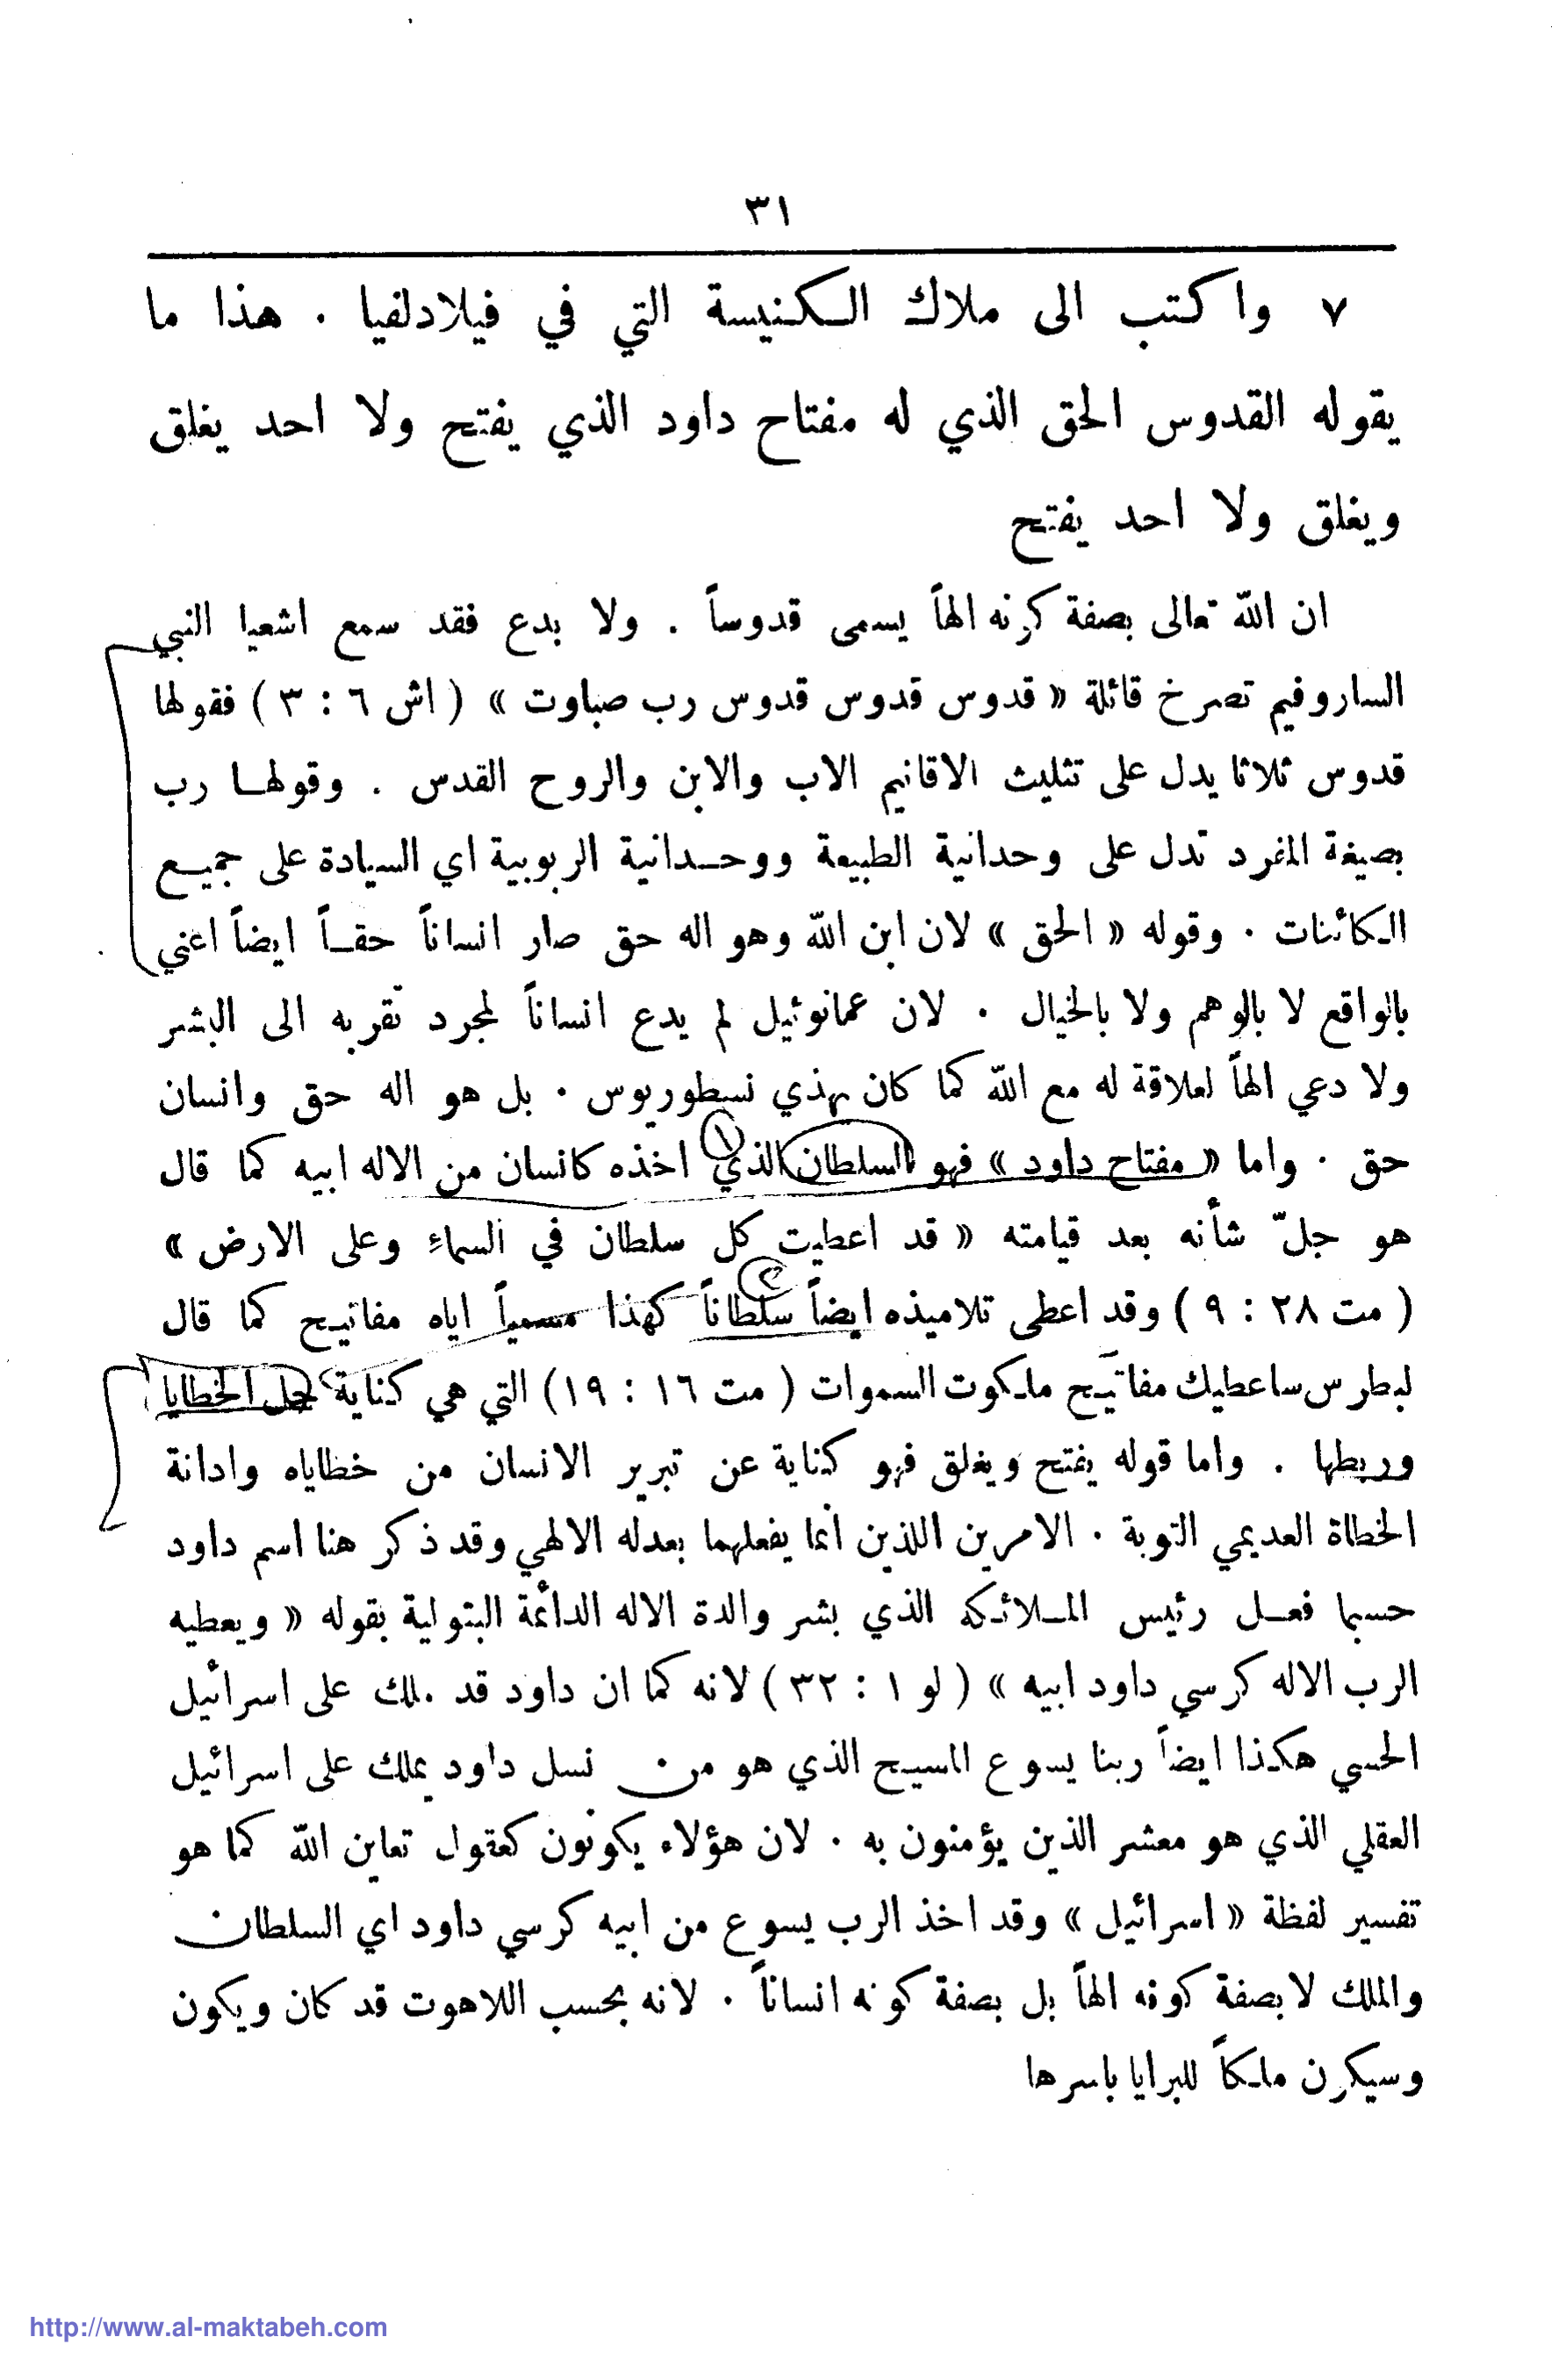 ٣١
٧ واكتب الى ملاك الكنيسة التي في فيلادلفيا . هذا ما
يقوله القدوس الحق الذي له مفتاح داود الذي يفتح ولا احد يغلق
ويغلق ولا احد يفتح
ان الله تعالى بصفة كونه الهاً يسمى قدوساً . ولا بدع فقد سمع اشعيا النبي
الساروفيم تصرخ قائلة « قدوس قدوس قدوس رب صباوت » ( اش ٦ : ٣ ) فقولها
قدوس ثلاثا يدل على تثليث الاقانيم الاب والابن والروح القدس . وقولها رب
بصيغة المفرد تدل على وحدانية الطبيعة ووحدانية الربوبية اي السيادة على جميع
الكائنات . وقوله « الحق » لان ابن الله وهو اله حق صار انساناً حقاً ايضاً اعني
بالواقع لا بالوهم ولا بالخيال . لان عمانوئيل لم يدع انساناً لمجرد تقربه الى البشر
ولا دعي الهاً لعلاقة له مع الله كما كان يهذي نسطوريوس . بل هو اله حق وانسان
حق . واما « مفتاح داود » فهو السلطان الذي ١ اخذه كانسان من الاله ابيه كما قال
هو جلّ شأنه بعد قيامته « قد اعطيت كل سلطان في السماءِ وعلى الارض »
( مت ٢٨ : ٩ ) وقد اعطى تلاميذه ايضاً سلطاناً ٢ كهذا مسمياً اياه مفاتيح كما قال
لبطرس ساعطيك مفاتيح ملكوت السموات ( مت ١٦ : ١٩ ) التي هي كناية لحل الخطايا
وربطها . واما قوله يفتح ويغلق فهو كناية عن تبرير الانسان من خظاياه وادانة
الخطاة العديمي التوبة . الامرين اللذين انما يفعلهما بعدله الالهي وقد ذكر هنا اسم داود
حسبما فعل رئيس الملائكه الذي بشر والدة الاله الدائمة البتولية بقوله « ويعطيه
الرب الاله كرسي داود ابيه » ( لو ١ : ٣٢ ) لانه كما ان داود قد ملك على اسرائيل
الحسي هكذا ايضاً ربنا يسوع المسيح الذي هو من نسل داود يملك على اسرائيل
العقلي الذي هو معشر الذين يؤمنون به . لان هؤلاء يكونون كعقول تعاين الله كما هو
تفسير لفظة « اسرائيل » وقد اخذ الرب يسوع من ابيه كرسي داود اي السلطان
والملك لا بصفة كونه الهاً بل بصفة كونه انساناً . لانه بحسب اللاهوت قد كان ويكون
وسيكون ملكاً للبرايا باسرها
http://www.al-maktabeh.com